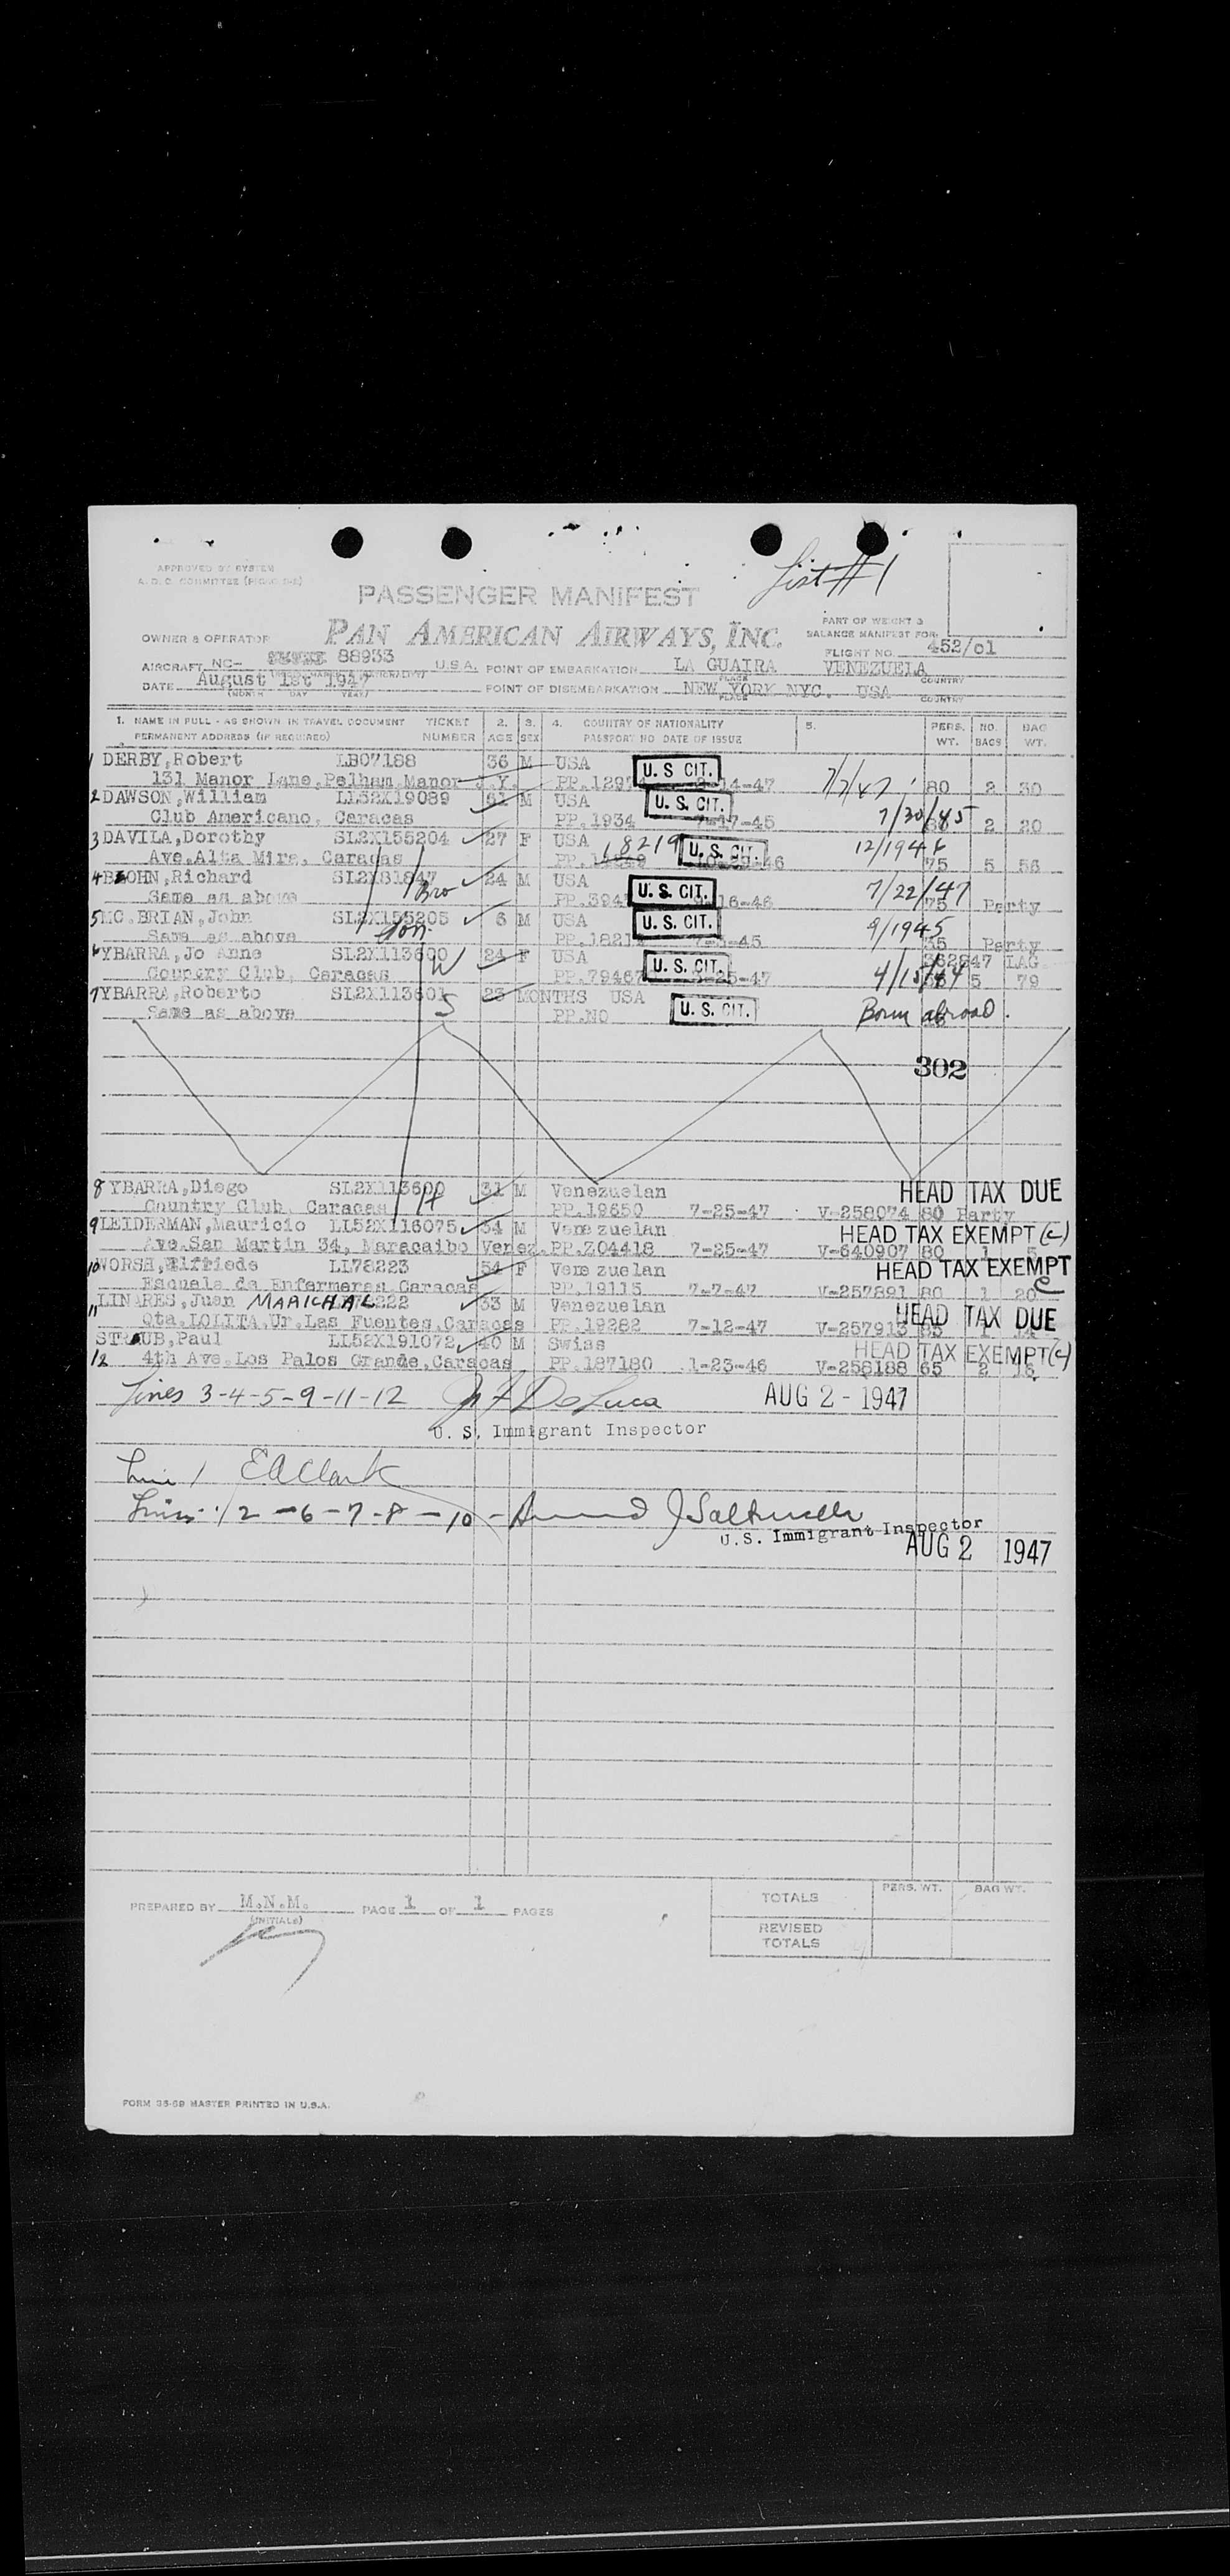 List #1
APPROVED BY SYSTEM
PASSENGER MANIFEST
PAN AMERICAN AIRWAYS, INC.
PART OF WEIGHT &
BALANCE MANIFEST FOR
OWNER & OPERATOR
FLIGHT NO. 452/01
AIRCRAFT NC- 88933 U.S.A. POINT OF EMBARKATION LA GUAIRA VENEZUELA
PLACE COUNTRY
DATE August 1st 1947 POINT OF DISEMBARKATION NEW YORK NYC. USA
(MONTH DAY YEAR) PLACE COUNTRY
1. NAME IN FULL - AS SHOWN IN TRAVEL DOCUMENT TICKET 2. 3. 4. COUNTRY OF NATIONALITY 5. PERS. NO. BAG
PERMANENT ADDRESS (IF REQUIRED) NUMBER AGE SEX PASSPORT NO DATE OF ISSUE WT. BAGS WT.
1 DERBY,Robert LB07188 36 M USA U.S CIT.
131 Manor Lane,Pelham Manor N.Y. PP.1297 -14-47 7/7/47 80 2 30
2 DAWSON,William LL52X19089 51 M USA U.S. CIT.
Club Americano, Caracas PP.1934 7-17-45 7/30/45 2 20
3 DAVILA,Dorothy SL2X155204 27 F USA 18219 U.S. CIT. 12/194
Ave.Alta Mira, Caracas PP. -46 75 5 56
4 OHN,Richard SL2X81847 Bro 24 M USA U.S. CIT.
Same as above PP.394 -16-46 7/22/47 75 Party
5 MC.BRIAN,John SL2X155205 6 M USA U.S. CIT. 9/1945
Same as above Son PP.1821 -45 35 Party
6 YBARRA,Jo Anne SL2X113600 W 24 F USA U.S. CIT. 362847 LAG
Country Club, Caracas PP.79467 -25-47 4/15/44 5 79
7 YBARRA,Roberto SL2X113601 S 23 MONTHS USA U.S. CIT.
Same as above PP.NO Born abroad.
302
8 YBARRA,Diego SL2X113600 31 M Venezuelan HEAD TAX DUE
Country Club, Caracas H PP.19650 7-25-47 V-258074 80 Party
9 LEIDERMAN,Mauricio LL52X116075 34 M Venezuelan HEAD TAX EXEMPT (C)
Ave.San Martin 34, Maracaibo Venez. PP.Z04418 7-25-47 V-640907 80 1 5
10 WORSH,Elfriede LL78223 54 F Venezuelan HEAD TAX EXEMPT C
Escuela de Enfermeras Caracas PP.19115 7-7-47 V-257891 80 1 20
11 LINARES,Juan MARICHAL 222 33 M Venezuelan HEAD TAX DUE
Qta.LOLITA,Ur.Las Fuentes,Caracas PP.19282 7-12-47 V-257913 85 1 14
STRAUB,Paul LL52X191072 40 M Swiss HEAD TAX EXEMPT(C)
12 4th Ave.Los Palos Grande,Caracas PP.187180 1-23-46 V-258188 65 2 16
Lines 3-4-5-9-11-12 De Luca AUG 2 - 1947
U. S. Immigrant Inspector
Line 1 E A Clark
Lines 2 - 6 - 7 - 8 - 10 -
U.S. Immigrant Inspector
AUG 2 1947
PREPARED BY M.N.M. PAGE 1 OF 1 PAGES
(INITIALS)
PERS. WT. BAG WT.
TOTALS
REVISED
TOTALS
FORM 35-69 MASTER PRINTED IN U.S.A.